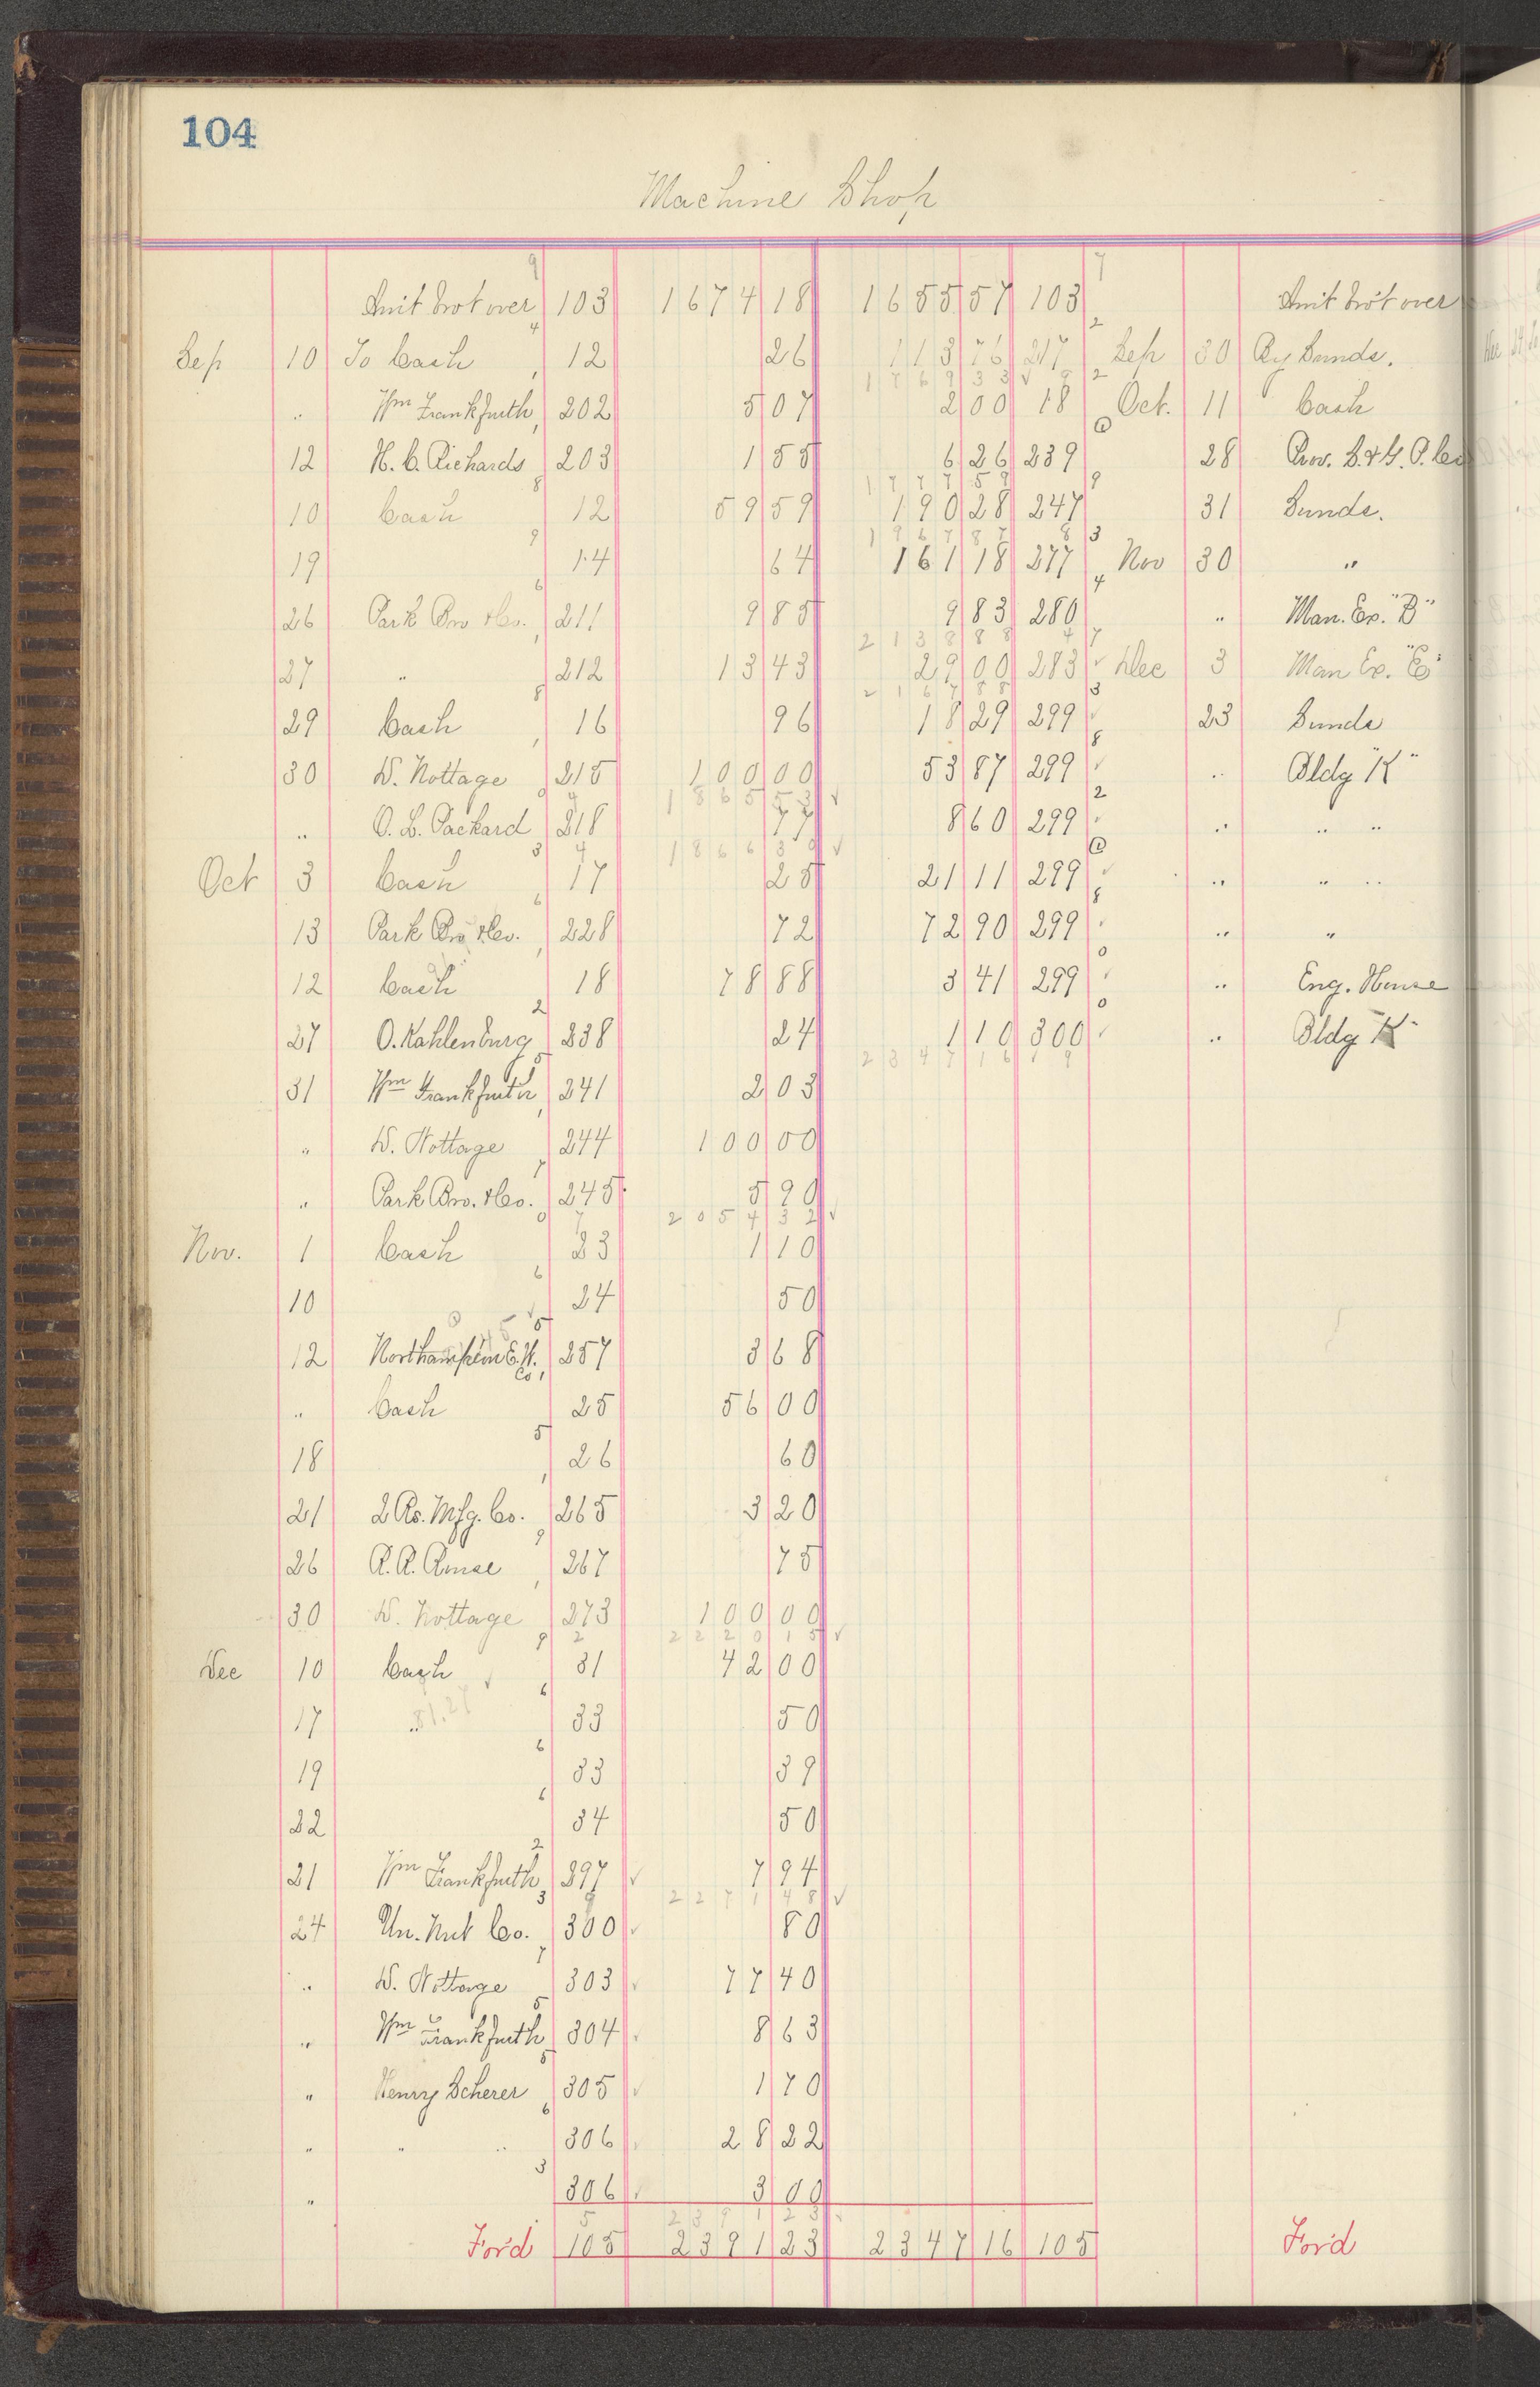 104
Machine Shop
Amt brot over 103 1674 18 1655 57 103 Amt brôt over
Sep 10 To Cash 12 26 113 76 217 Sep 30 By Sunds.
1769 33 ✓
" Wm Frankfurth 202 5 07 2 00 18 Oct. 11 Cash
12 H. C. Richards 203 1 55 6 26 239 28 Prov. L. & G. P. Co
1777 59
10 Cash 12 59 59 190 28 247 31 Sunds.
1967 87
19 14 64 161 18 277 Nov 30 "
26 Park Bro & Co. 211 9 85 9 83 280 " Man. Ex. "B"
2138 88
27 " 212 13 43 29 00 283 ✓ Dec 3 Man Ex. "E"
2167 88
29 Cash 16 96 18 29 299 23 Sunds
30 W. Nottage 215 100 00 53 87 299 ✓ " Bldg "K"
1865 53 ✓
" O. L. Packard 218 77 8 60 299 " " "
1866 30 ✓
Oct 3 Cash 17 25 21 11 299 " " "
13 Park Bro & Co. 228 72 72 90 299 " "
12 Cash 18 78 88 3 41 299 " Eng. House
27 O. Kahlenburg 238 24 1 10 300 ✓ " Bldg "K"
2347 16
31 Wm Frankfurth 241 2 03
" W. Nottage 244 100 00
" Park Bro. & Co. 245 5 90
2054 32 ✓
Nov. 1 Cash 23 1 10
10 24 50
12 Northampton E. W. Co 257 3 68
" Cash 25 56 00
18 26 60
21 2 Rs. Mfg. Co. 265 3 20
26 A. A. 267 75
30 W. Nottage 273 100 00
2220 15 ✓
Dec 10 Cash 31 42 00
17 " 51.27 33 50
19 33 39
22 34 50
21 Wm Frankfurth 297 ✓ 7 94
2271 48 ✓
24 Un. Nut Co. 300 ✓ 80
" W. Nottage 303 ✓ 77 40
" Wm Frankfurth 304 ✓ 8 63
" Henry Scherer 305 ✓ 1 70
" " " 306 ✓ 28 22
" 306 ✓ 3 00
2391 23
For'd 105 2391 23 2347 16 105 For'd